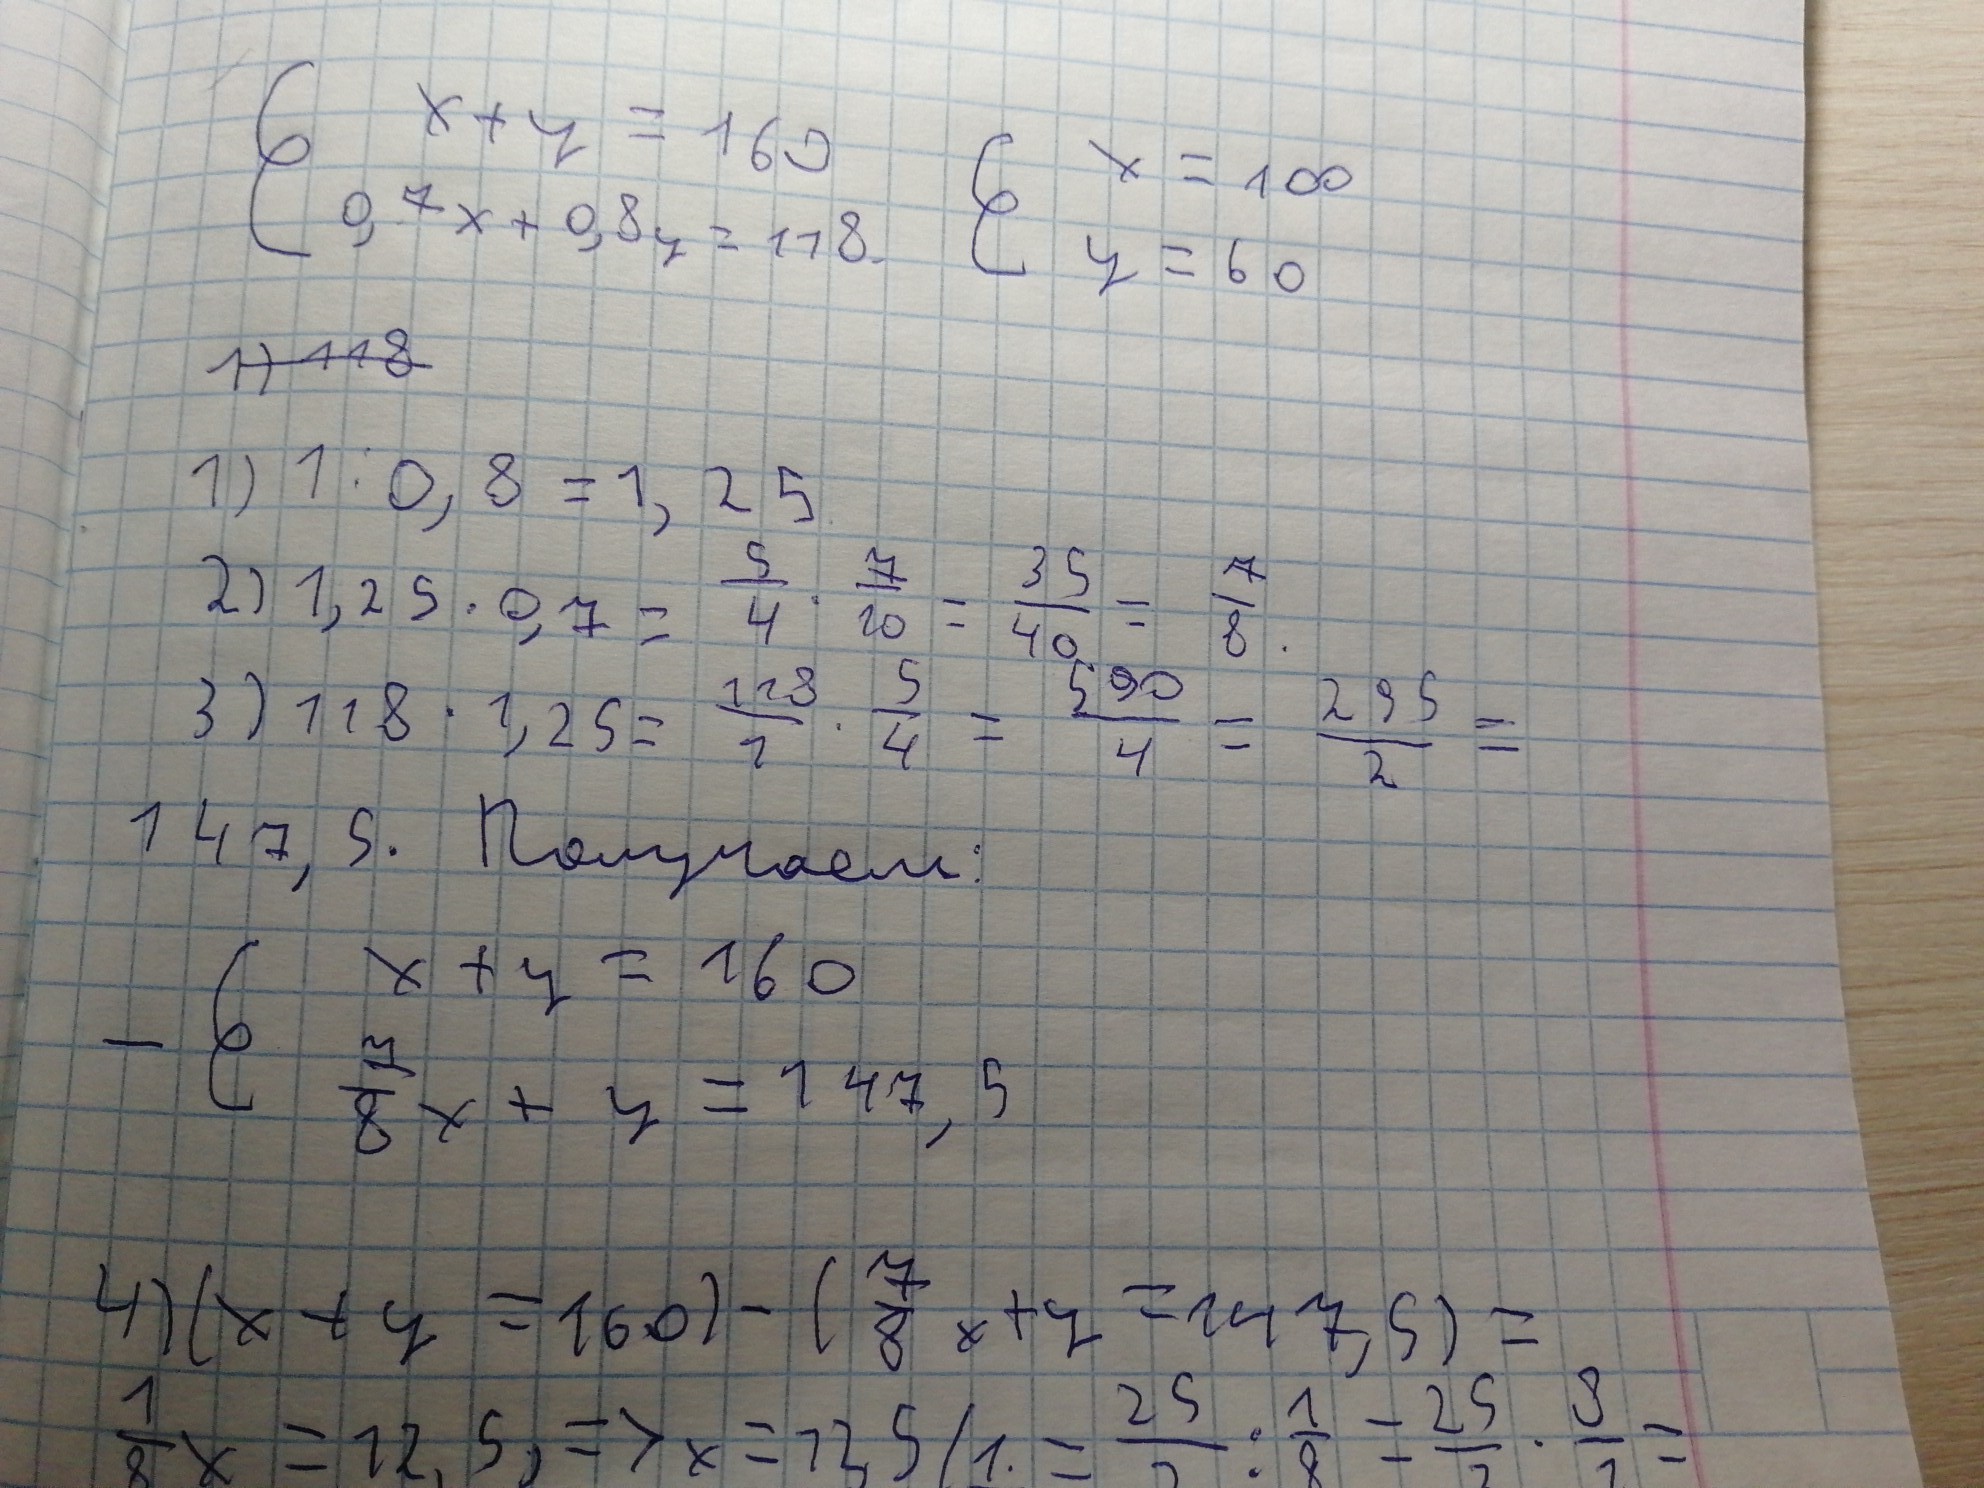 x+y = 160
x = 100
0,7x+0,8y=118
y = 60
1) 118
1) 1:0,8=1,25
2) 1,25·0,7= 5/4 · 7/10 = 35/40 = 7/8.
3) 118·1,25= 118/1 · 5/4 = 590/4 = 295/2 =
147,5. Получаем:
x+y = 160
- 7/8x+y = 147,5
4)(x+y=160)-(7/8x+y=147,5)=
1/8x=12,5,=>x=12,5/1 = 25/2 : 1/8 = 25/2 · 8/1 =